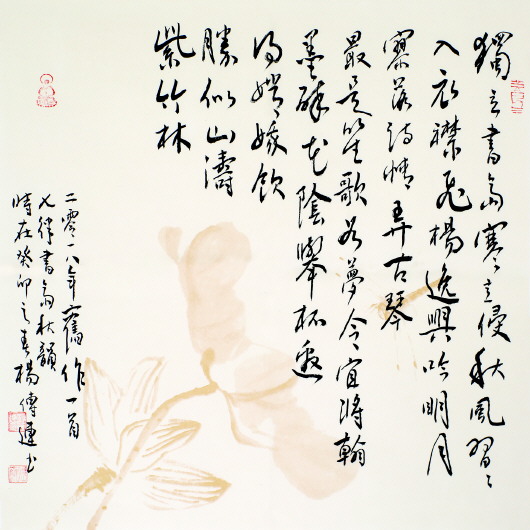 獨立書窗寒意侵秋風習習
入衣襟飛楊逸興吟明月
寥落詩情弄古琴
最是笙歌如夢令宜將翰
墨醉花陰舉杯邀
得嫦娥飲
勝似山濤
紫竹林
二零一八年舊作一首
七律書窗秋韻
時在癸卯之春楊傳運书